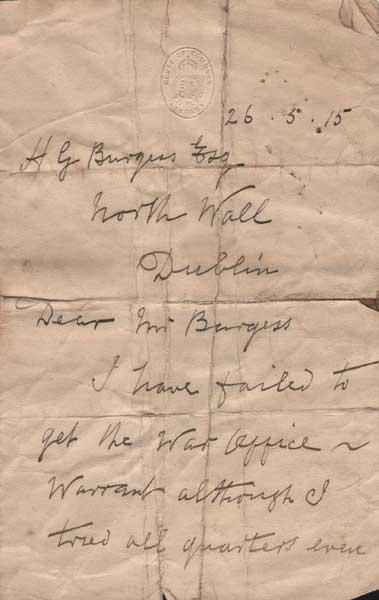 HOUSE OF COMMONS
26.5.15
H G Burgess Esq
North Wall
Dublin
Dear Mr Burgess
I have failed to
get the War Office ~
Warrant although I
tried all quarters even